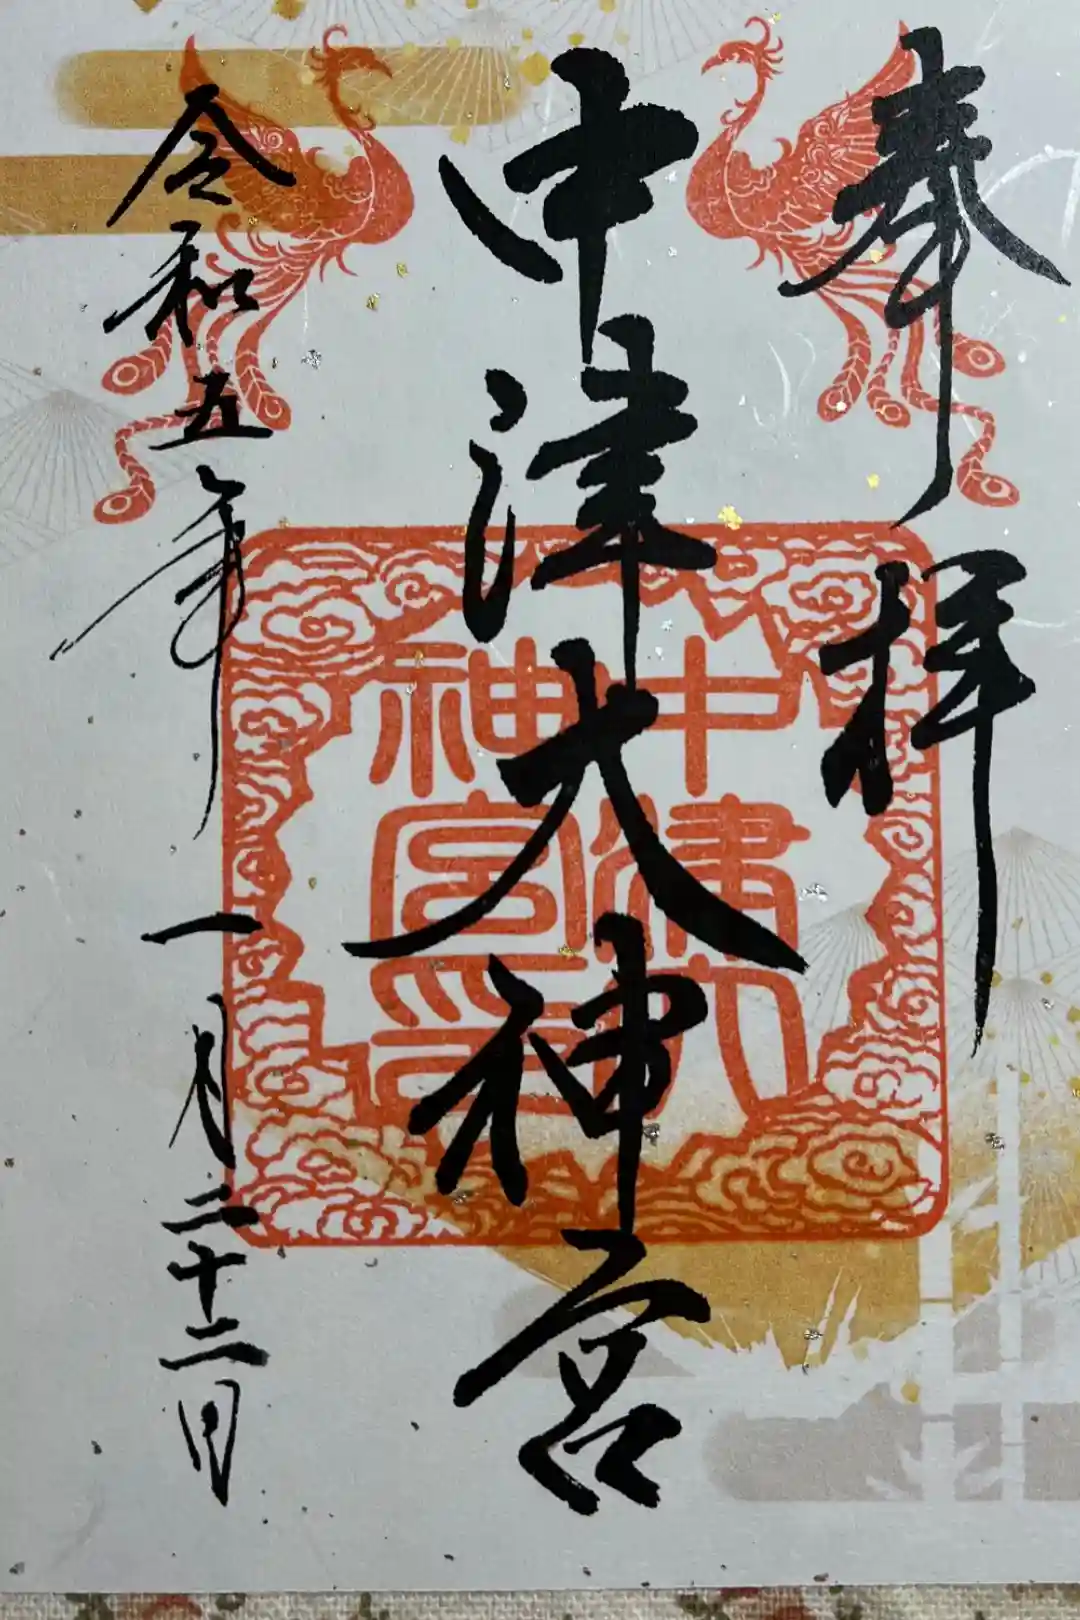 奉拝
中津大神宮
中津大神宮印
令和五年一月二十二日